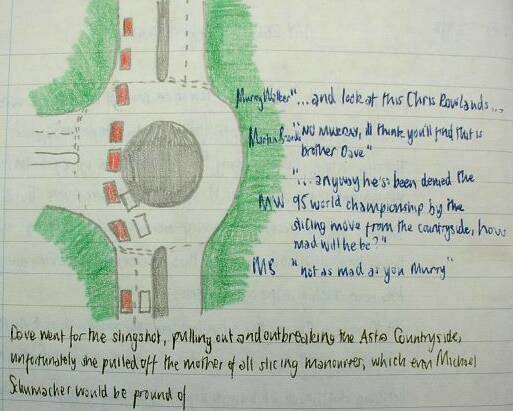 Murry Walker "...and look at this Chris Rowlands...
Martin Brundle "NO MURRAY, I'll think you'll find that is
brother Dave"
"...anyway he's been denied the
MW 95 world championship by the
slicing move from the countryside, how
mad will he be?"
MB "not as mad as you Murry"
Dave went for the slingshot, pulling out and outbreaking the Astra Countryside,
unfortunately she pulled off the mother of all slicing manouvres, which even Michael
Schumacher would be pround of